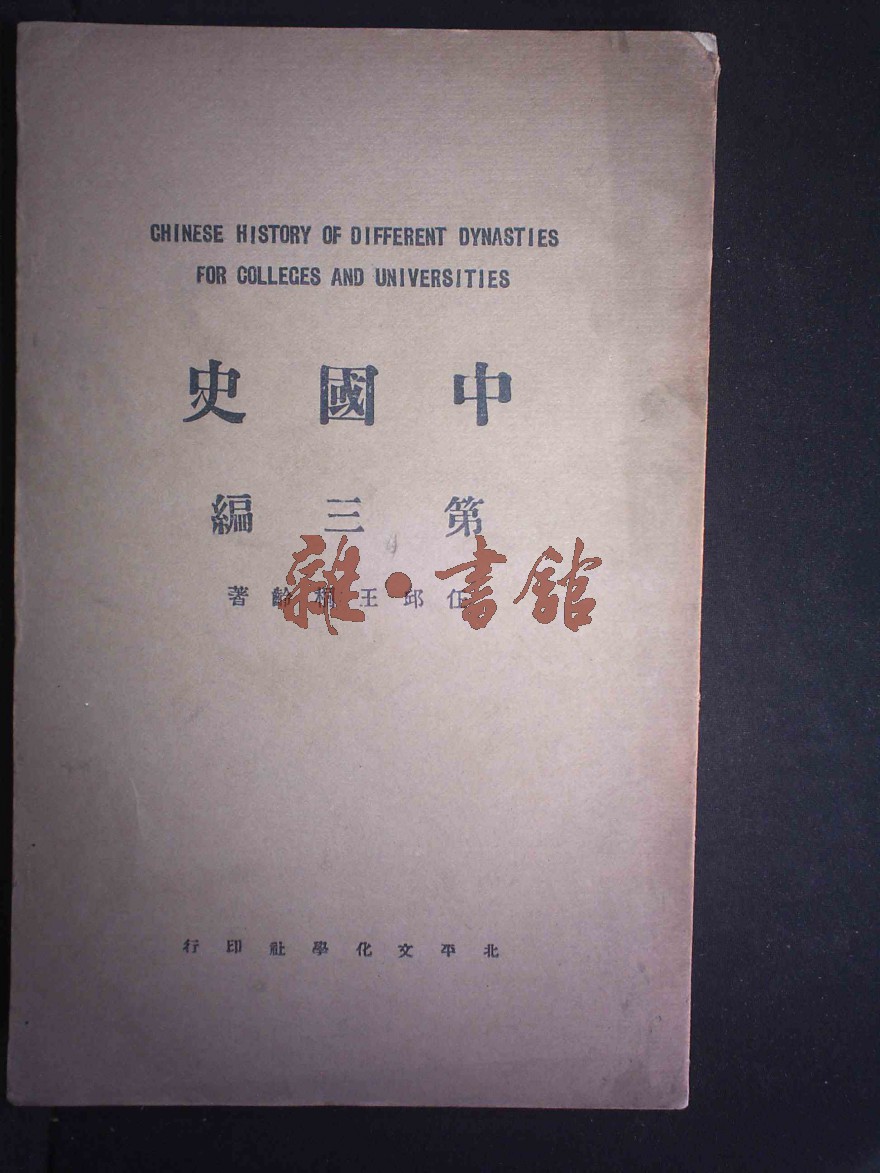 CHINESE HISTORY OF DIFFERENT DYNASTIES
FOR COLLEGES AND UNIVERSITIES
中國史
第三編
任邱王桐齡著
雜·書館
北平文化學社印行